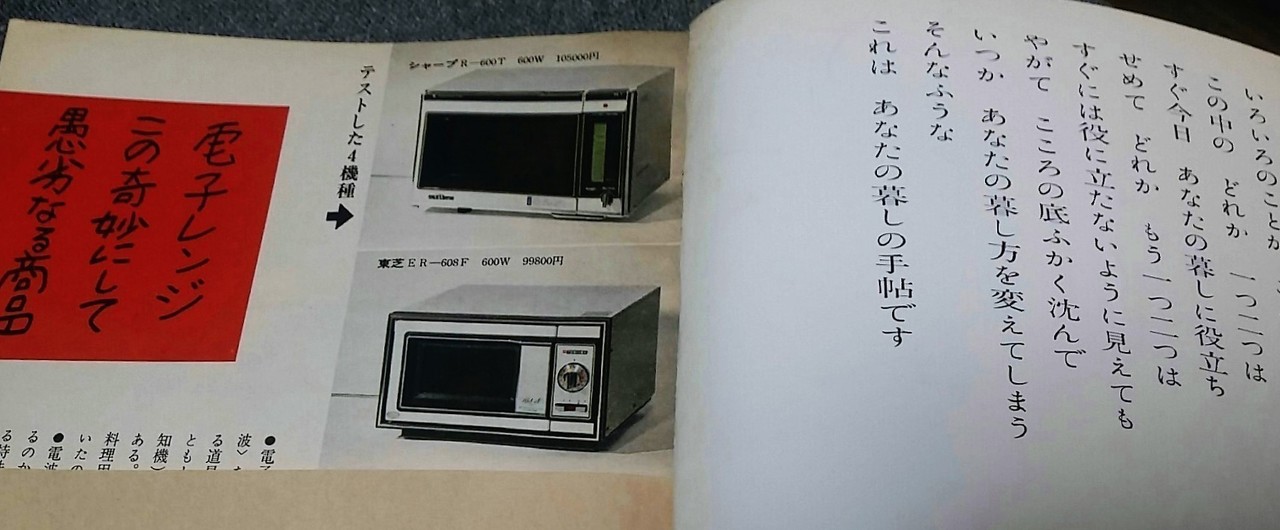 いろいろのことが
この中の どれか 一つ二つは
すぐ今日 あなたの暮しに役立ち
せめて どれか もう一つ二つは
すぐには役に立たないように見えても
やがて こころの底ふかく沈んで
いつか あなたの暮し方を変えてしまう
そんなふうな
これは あなたの暮しの手帖です
シャープR—600T 600W 105000円
東芝ER—608F 600W 99800円
テストした4機種
電子レンジ
この奇妙にして
愚劣なる商品
●電
波〉
る道
ともし
知機〉
ある。
料理
いたの
●電波
るのか
る特